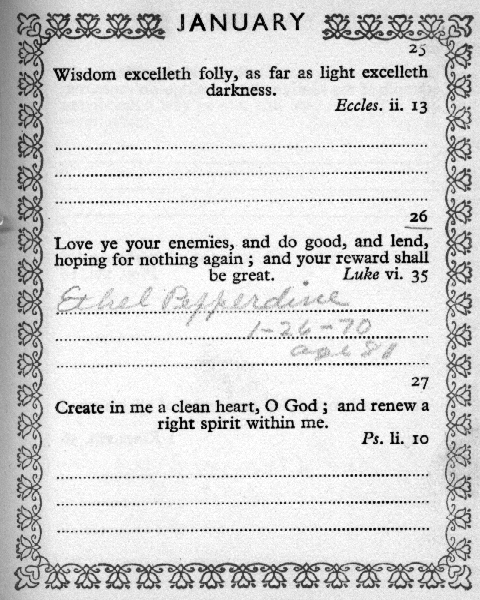 JANUARY
25
Wisdom excelleth folly, as far as light excelleth
darkness.
Eccles. ii. 13
26
Love ye your enemies, and do good, and lend,
hoping for nothing again ; and your reward shall
be great. Luke vi. 35
Ethel Pepperdine
1-26-70
age 81
27
Create in me a clean heart, O God ; and renew a
right spirit within me.
Ps. li. 10